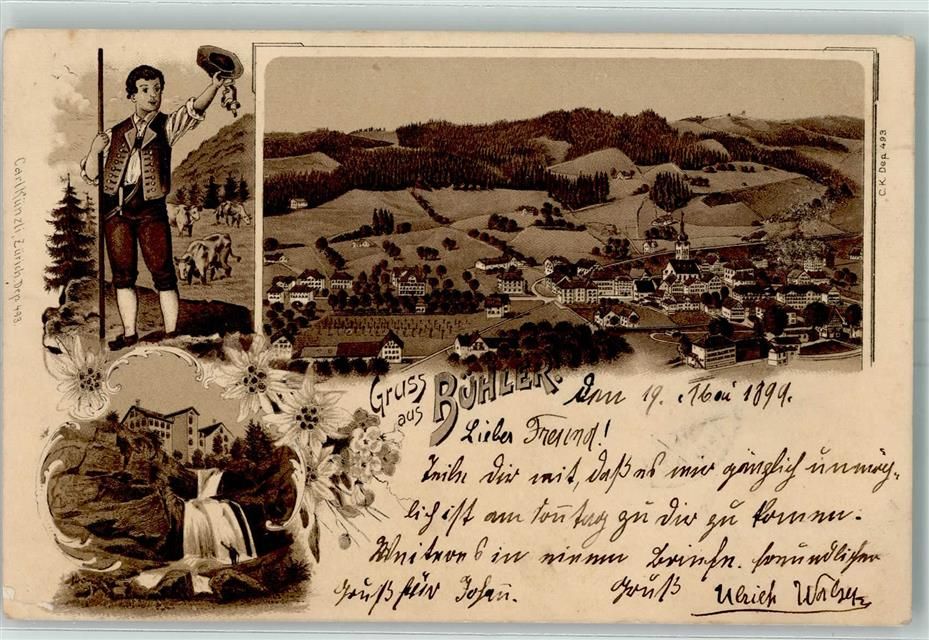 Carl Künzli, Zürich, Dep. 493.
C.K. Dep. 493
Gruss
aus BÜHLER.
Den 19. Mai 1899.
Lieber Freund!
Teile dir mit, daß es mir gänzlich unmög-
lich ist am Sontag zu dir zu komen.
Weiteres in einem Briefe. freundlicher
Gruß für Johan̄. Gruß Ulrich Walser